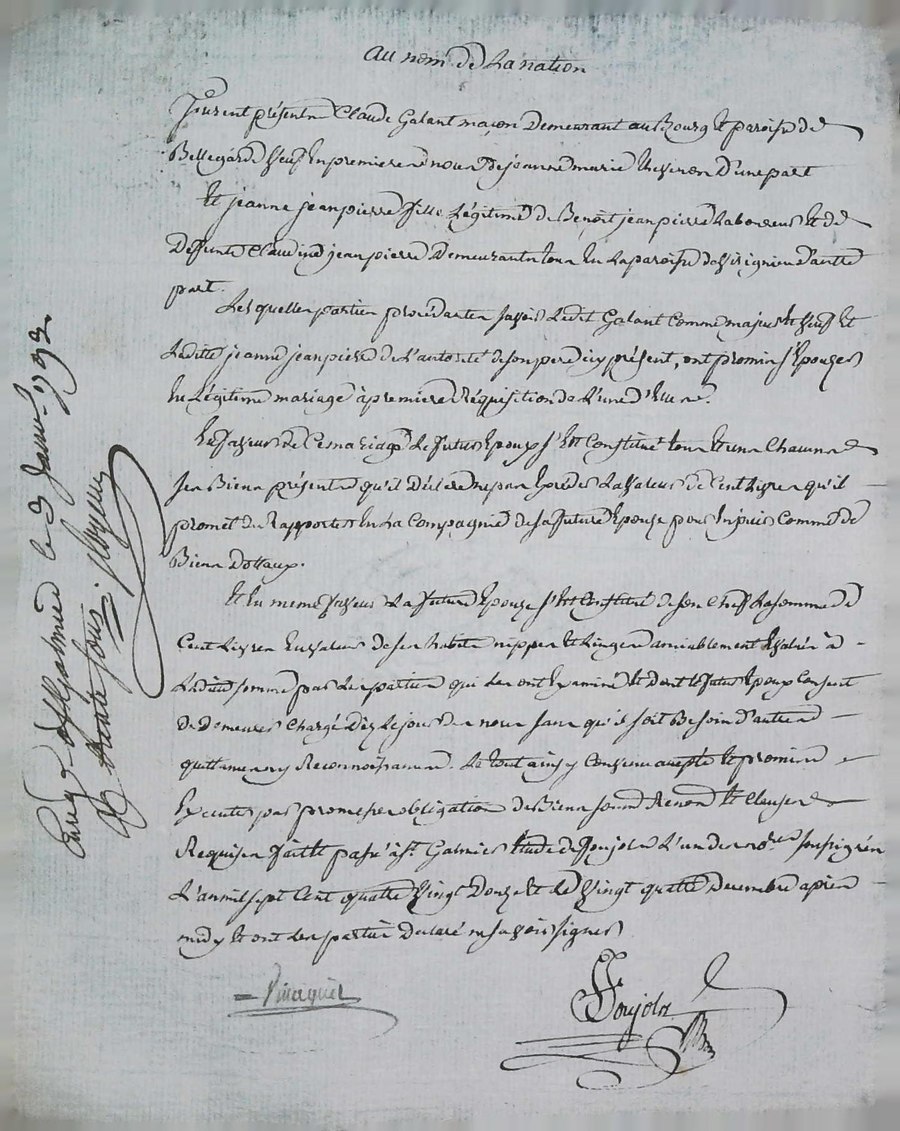 Au nom de La nation
Furent présents Claude Galant maçon Demeurant au Bourg et paroisse de
Bellegarde Veuf En premieres noces de jeanne marie D'une part
Et jeanne jeanpierre fille Légitime de Benoit jeanpierre Laboureur Et de
Deffunte Claudine jeanpierre Demeurants tous En La paroisse d'autre
part.
Lesquelles parties procédantes savoir Ledit Galant Comme majeur Et Veuf Et
Laditte jeanne jeanpierre de L'autorité de son pere icy présent, ont promis s'Epouzer
En Légitime mariage à premiere Réquisition de L'une d'Elles.
En faveur de Ce mariage Le futur Epoux s'Est Constitué tous Et uns Chacuns
ses Biens présents qu'il Déclare ne pas Exceder La Valeur de Cent Livres qu'il
promet de Rapporter En La Compagnie de sa future Epouze pour jouir Comme de
Biens Dottaux.
Et En meme faveur La future Epouze s'Est Constitué de son Chef La somme de
Cent Livres En valeur de ses habits nippes Et Linges amiablement Evalués à
Laditte somme par Les parties qui Les ont Examiné Et Dont Le futur Epoux Consent
de Demeurer Chargé Dez Le jour des noces sans qu'il soit Besoin d'autres
quittances ny Reconnoissances. Le tout ainsy Convenu accepté Et promis
Executer par promesses obligation de Biens soum. Renon. Et Clauses
Requises faitte passé à St. Galmier Etude de Soujols L'un des no.res soussignés
L'an mil sept Cent quatre Vingt Douze Et Le Vingt quatre Decembre après
midy Et ont Les parties Declaré ne savoir signer
Soujols
Enreg. à St Galmier le 3 janv. 1793
R. trente sous